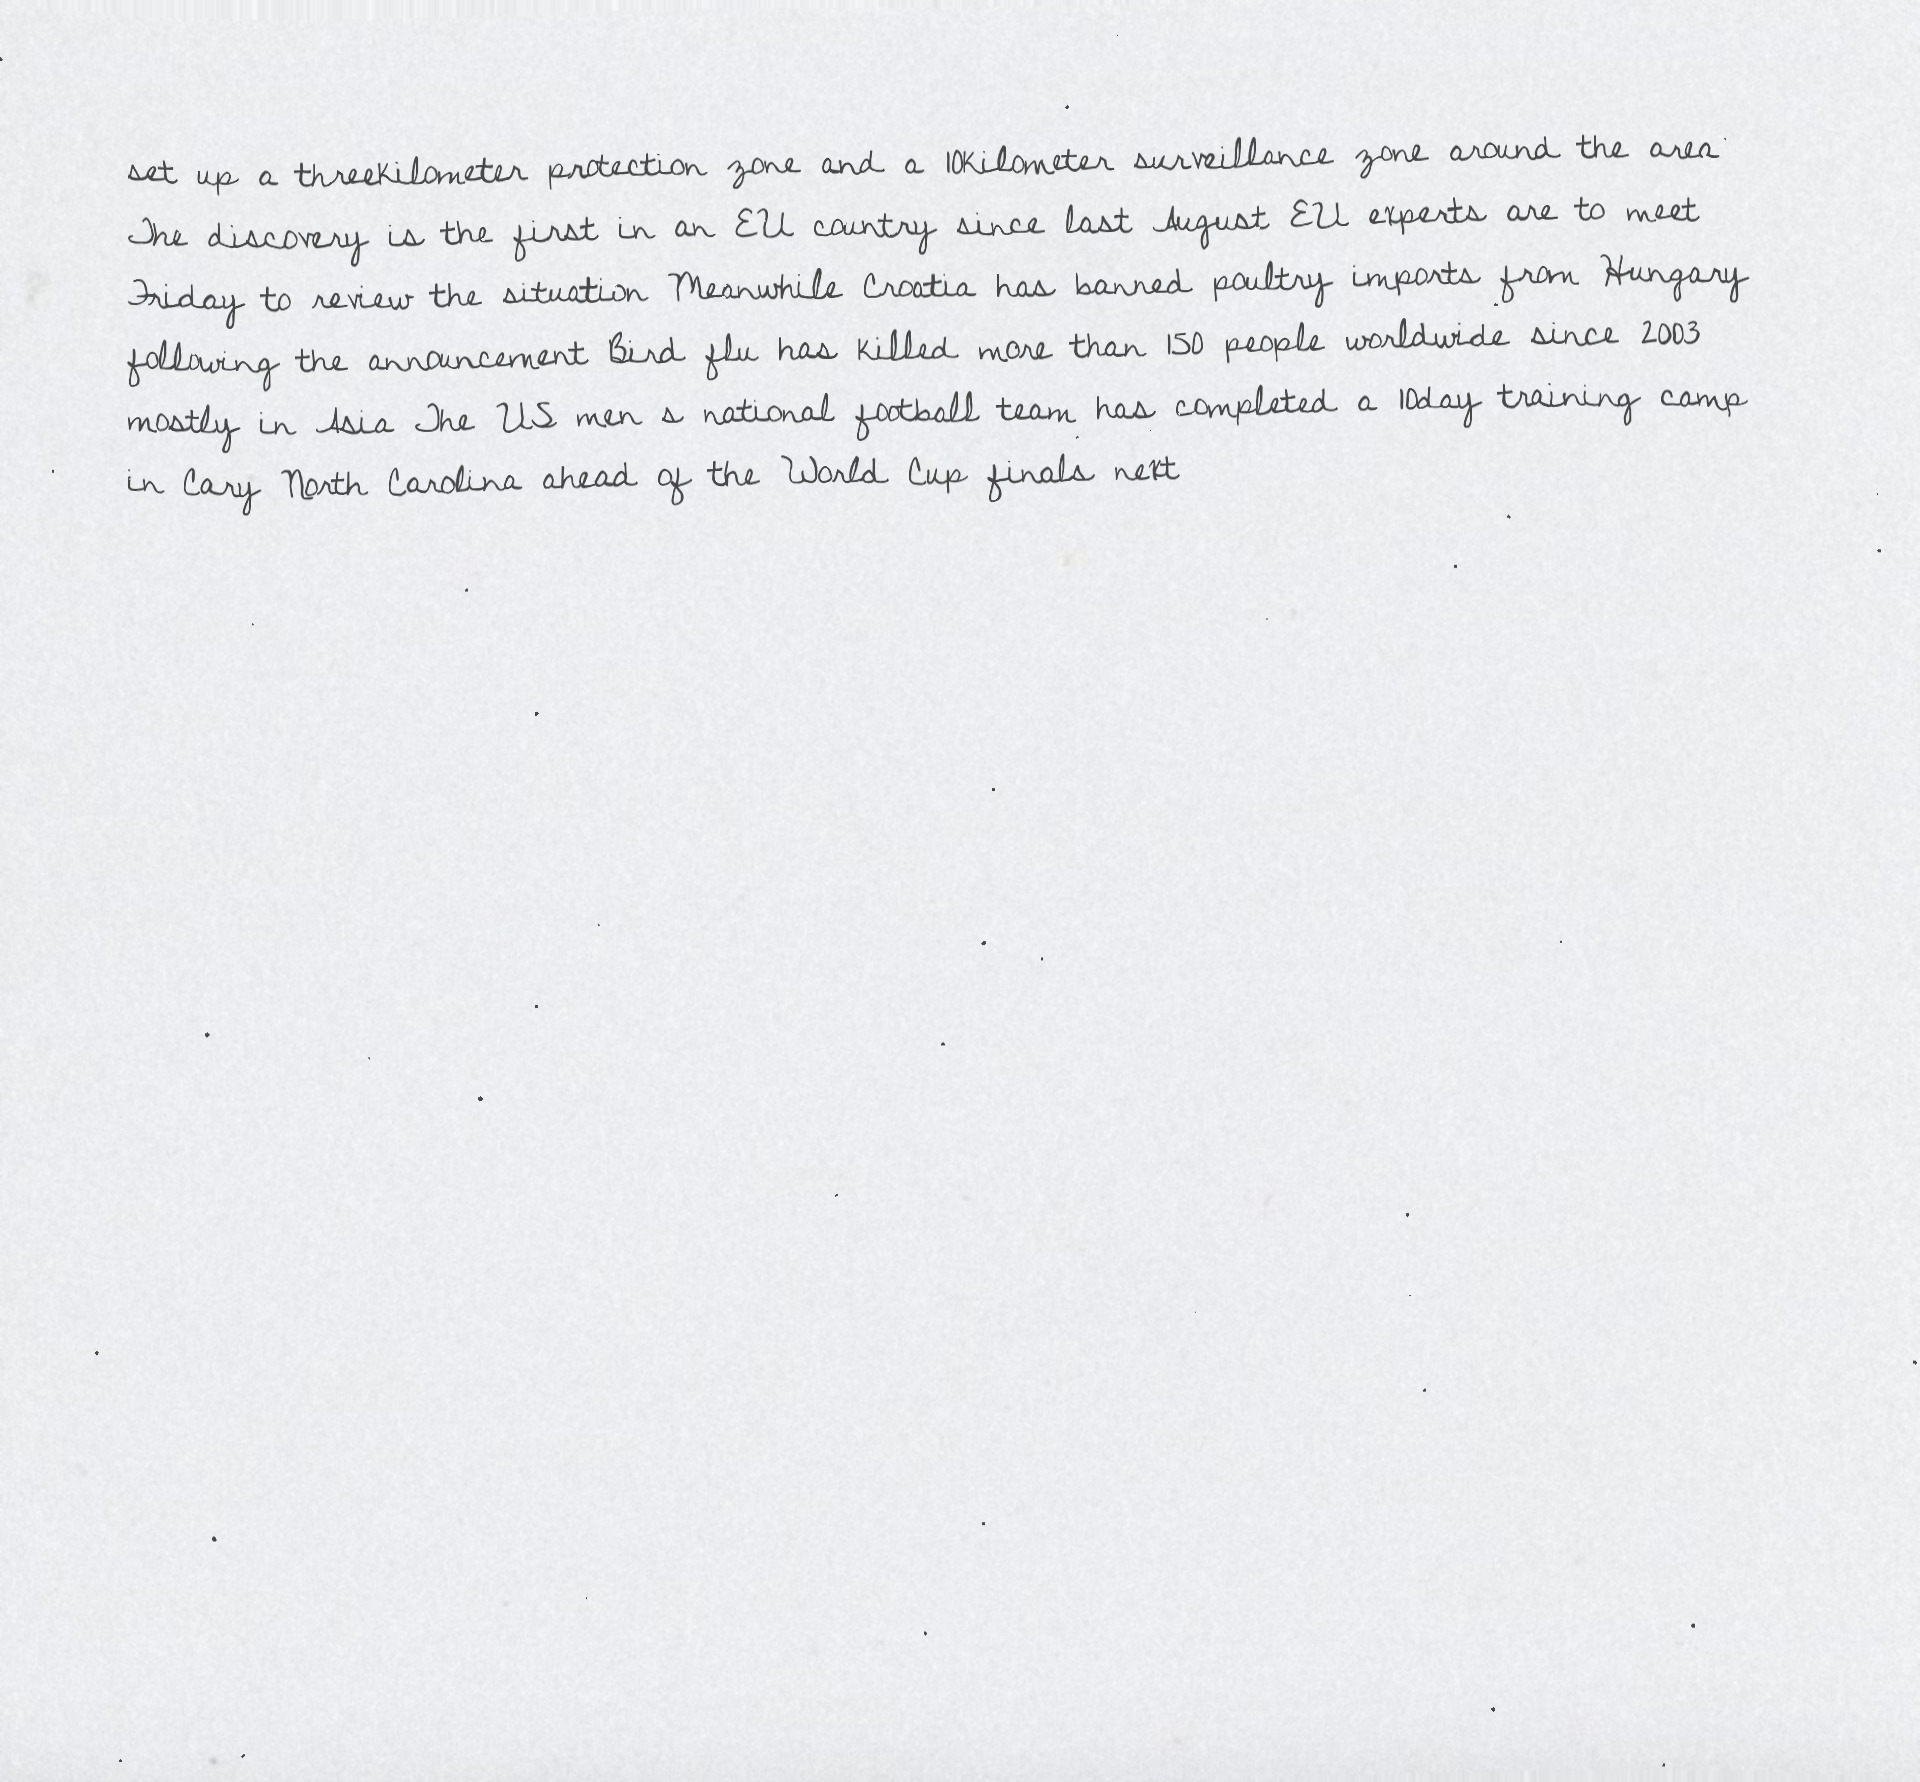 set up a threekilometer protection zone and a 10kilometer surveillance zone around the area
The discovery is the first in an EU country since last August EU experts are to meet
Friday to review the situation Meanwhile Croatia has banned poultry imports from Hungary
following the announcement Bird flu has killed more than 150 people worldwide since 2003
mostly in Asia The US men s national football team has completed a 10day training camp
in Cary North Carolina ahead of the World Cup finals next